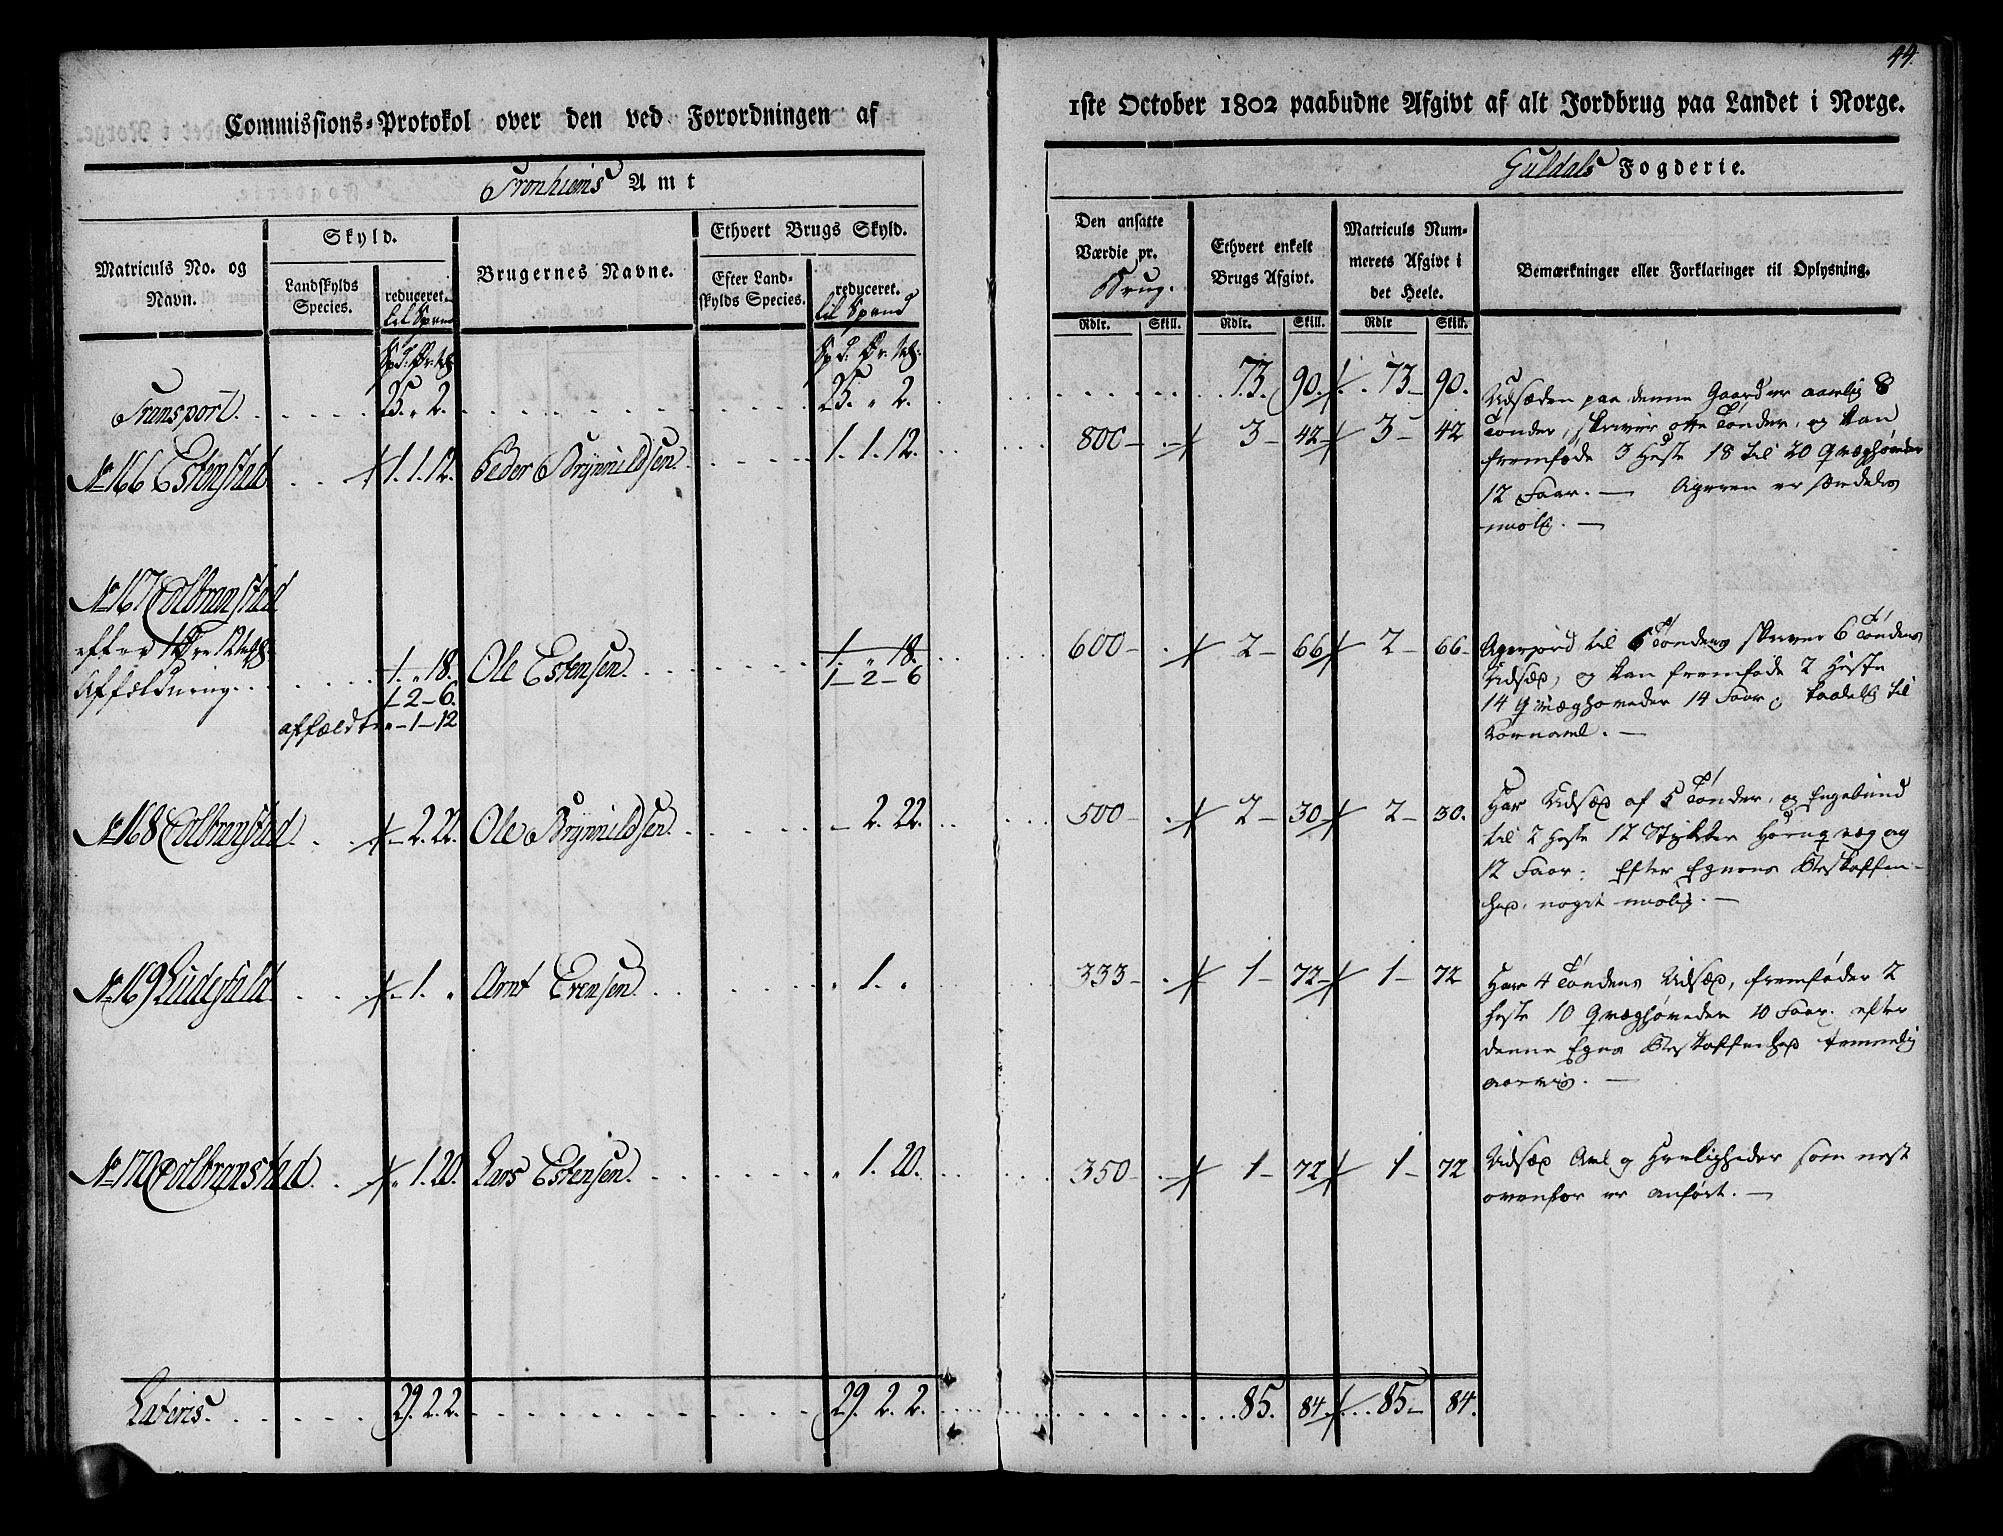 44.
Commissions-Protokol over den ved Forordningen af
1ste October 1802 paabudne Afgivt af alt Jordbrug paa Landet i Norge.
Tronhiems Amt
Guldals Fogderie.
Matriculs No. og Navn.
Skyld.
Landskylds Species.
reduceret. til Spand
Brugernes Navne.
Ethvert Brugs Skyld.
Efter Landskylds Species.
reduceret. til Spand
Den ansatte Værdie pr. Brug.
Ethvert enkelt Brugs Afgivt.
Matriculs Nummerets Afgivt i det Heele.
Bemærkninger eller Forklaringer til Oplysning.
Rdlr. Skill. Rdlr. Skill. Rdlr Skill.
Transport. 25. „ 2. 25. „ 2. 73. 90. 73 – 90.
No 166 Estenstad 1. 1. 12. Peder Brynnildsen. 1. 1. 12. 800 – 3 – 42 – 3 – 42
Udsæden paa denne Gaard er aarlig 8
Tønder, skriver otte Tønder, og kan
fremføde 3 Heste 18 til 20 Qvæghøveder
12 Faar. — Ageren er særdeles
No 167 Colbranstad
efter 1 Øre 12
Affældning. 1. „ 18. Ole Estensen. 1. „ 18. 600 – 2 – 66 2 – 66 –
1 – 2 – 6. 1 – 2 – 6
affældt „ – 1 – 12
Agerjord til 6 Tønders skriver 6 Tønders
Udsæd, og kan fremføde 2 Heste
14 Qvæghøveder 14 Faar, til
Kornavl. —
No 168 Colbranstad. – 2. 22. Ole Brynnildsen. – 2. 22. 500 – 2 – 30 – 2 – 30.
Har Udsæd af 5 Tønder, og
til 2 Heste 12 Stykker Hornqvæg og
12 Faar. Efter Egnens Beskaffen-
hed, noget —
No 169 – 1. „ Arnt Evensen. „ 1. „ 333 – 1 – 72 – 1 – 72
Har 4 Tønders Udsæd, fremføder 2
Heste 10 Qvæghøveder 10 Faar. efter
denne Egns Beskaffenhed temmelig
No 170 Colbranstad. „ 1. 20. Lars Estensen. „ 1. 20. 350 – 1 – 72 1 – 72
Udsæd Avl og Herligheder som nest
ovenfor er anført. —
Lateris. 29. 2. 2. 29. 2. 2. 85. 84. 85 – 84.